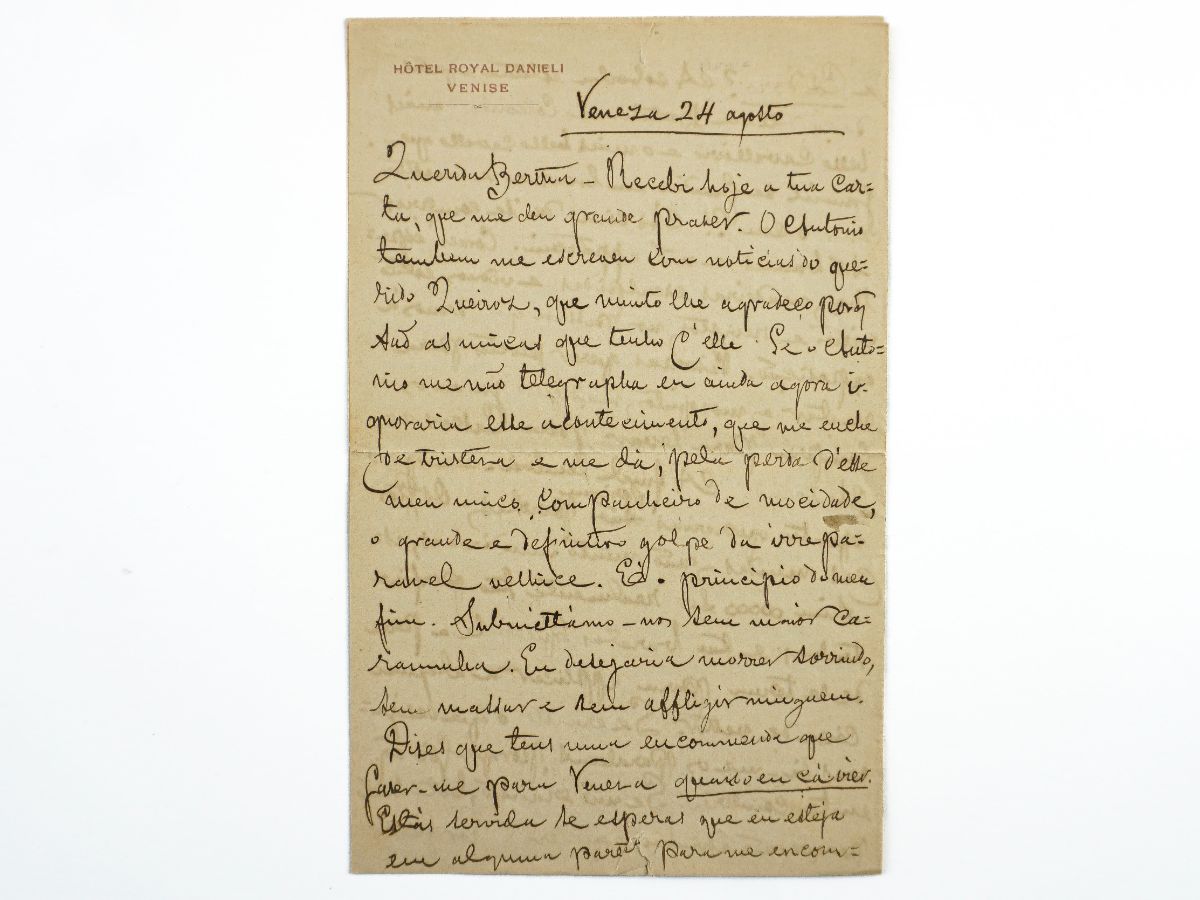 HÔTEL ROYAL DANIELI
VENISE
Veneza 24 agosto
Querida Bertha – Recebi hoje a tua car=
ta, que me deu grande praser. O Antonio
tambem me escreveu com noticias do que=
rido Queiroz, que muito lhe agradeço porq̃
são as unicas que tenho d'elle. Se o Anto=
nio me não telegrapha eu ainda agora i-
gnoraria esse acontecimento, que me enche
de tristesa e me dá, pela perda d'esse
meu unico companheiro de mocidade,
o grande e definitivo golpe da irrepa-
ravel velhice. É o principio do meu
fim. Submettâmo-nos sem maior ca=
ramunha. Eu desejaria morrer sorrindo,
sem massar e sem affligir ninguem.
Dises que tens uma encommenda que
faser-me para Venesa quando eu cá vier.
Estás servida se esperas que eu esteja
em alguma parte para me encom=